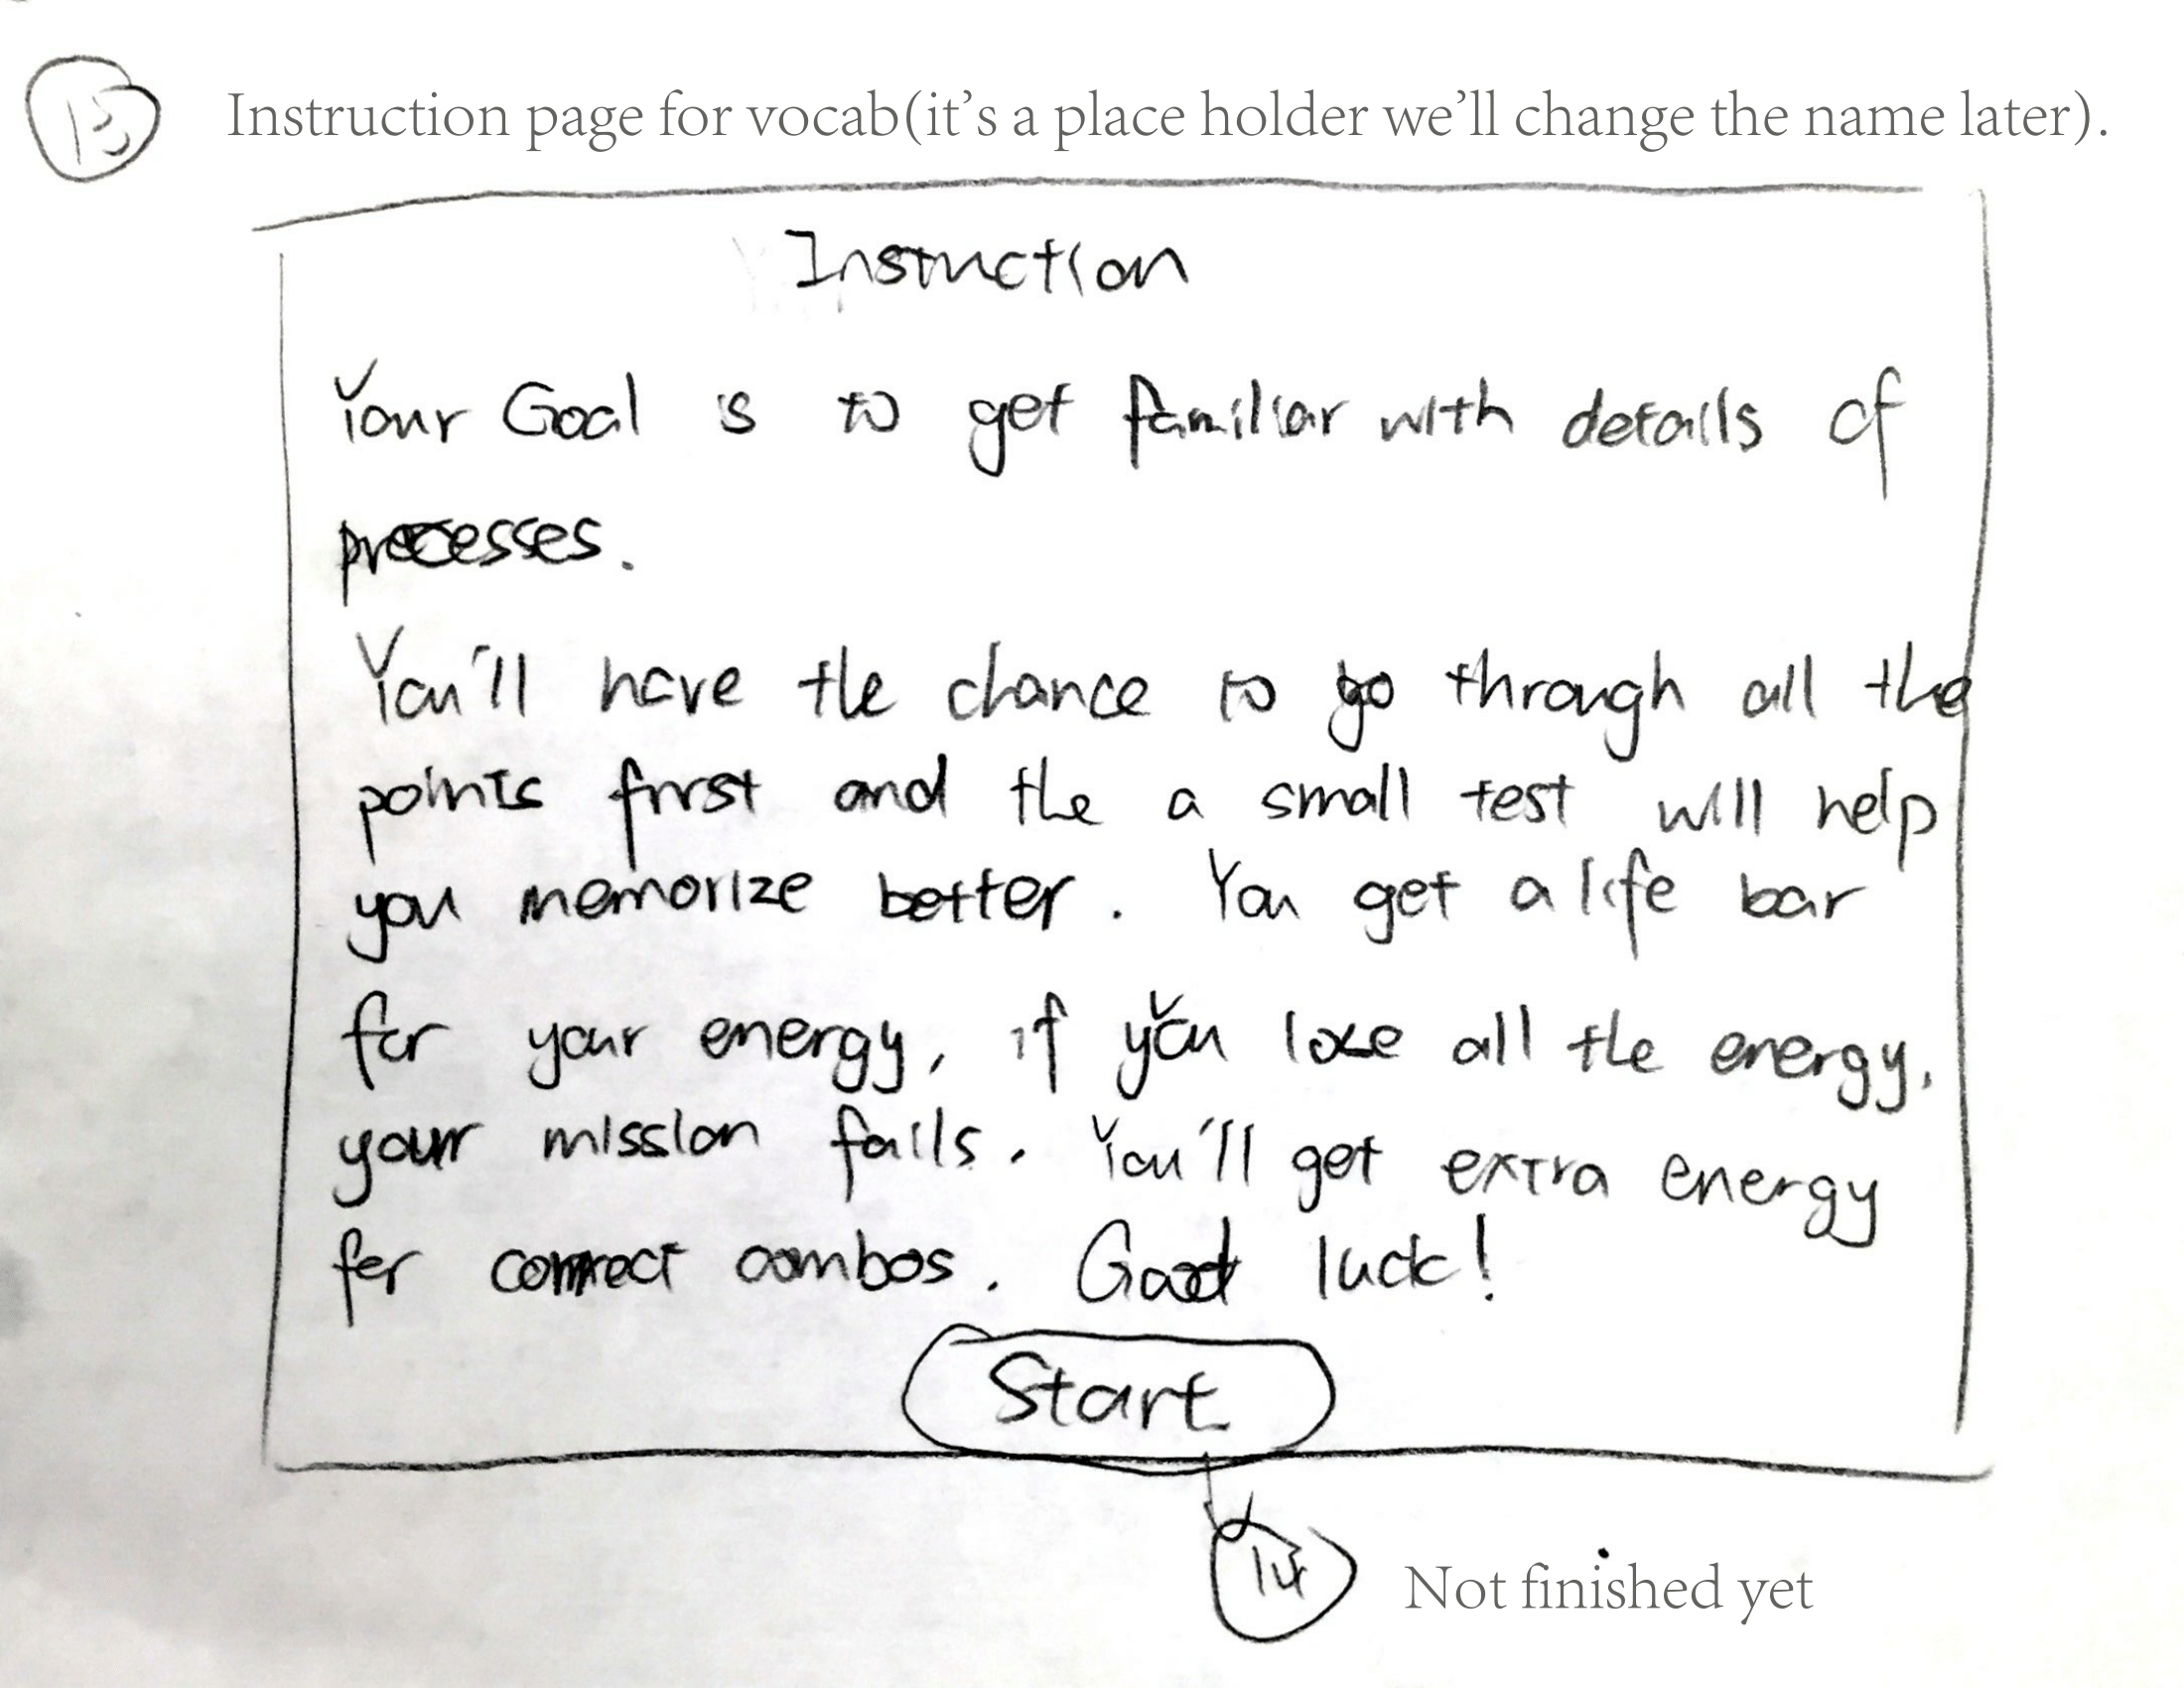 13 Instruction page for vocab(it's a place holder we'll change the name later).
Instruction
Your Goal is to get familiar with details of
processes.
You'll have the chance to go through all the
points first and the a small test will help
you memorize better. You get a life bar
for your energy, if you lose all the energy,
your mission fails. You'll get extra energy
for correct combos. Good luck!
Start
14 Not finished yet